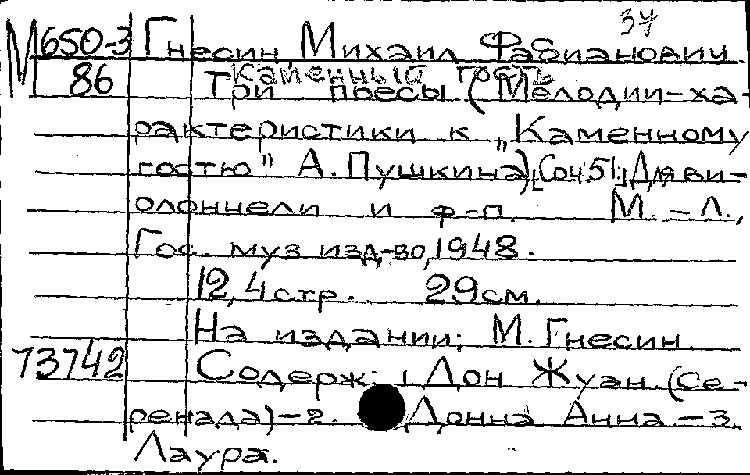 34
М 650-3 Гнесин Михаил Фабианович
86 Каменный гость
Три пьесы (Мелодии-ха-
рактеристики к „Каменному
гостю" А. Пушкина) [Соч.51] Для ви-
олончели и ф-п. М.-Л.,
Гос. муз изд-во, 1948.
12, 4 стр. 29 см.
На издании: М. Гнесин.
73742 Содерж: 1 Дон Жуан (Се-
ренада)-2. Донна Анна-3.
Лаура.